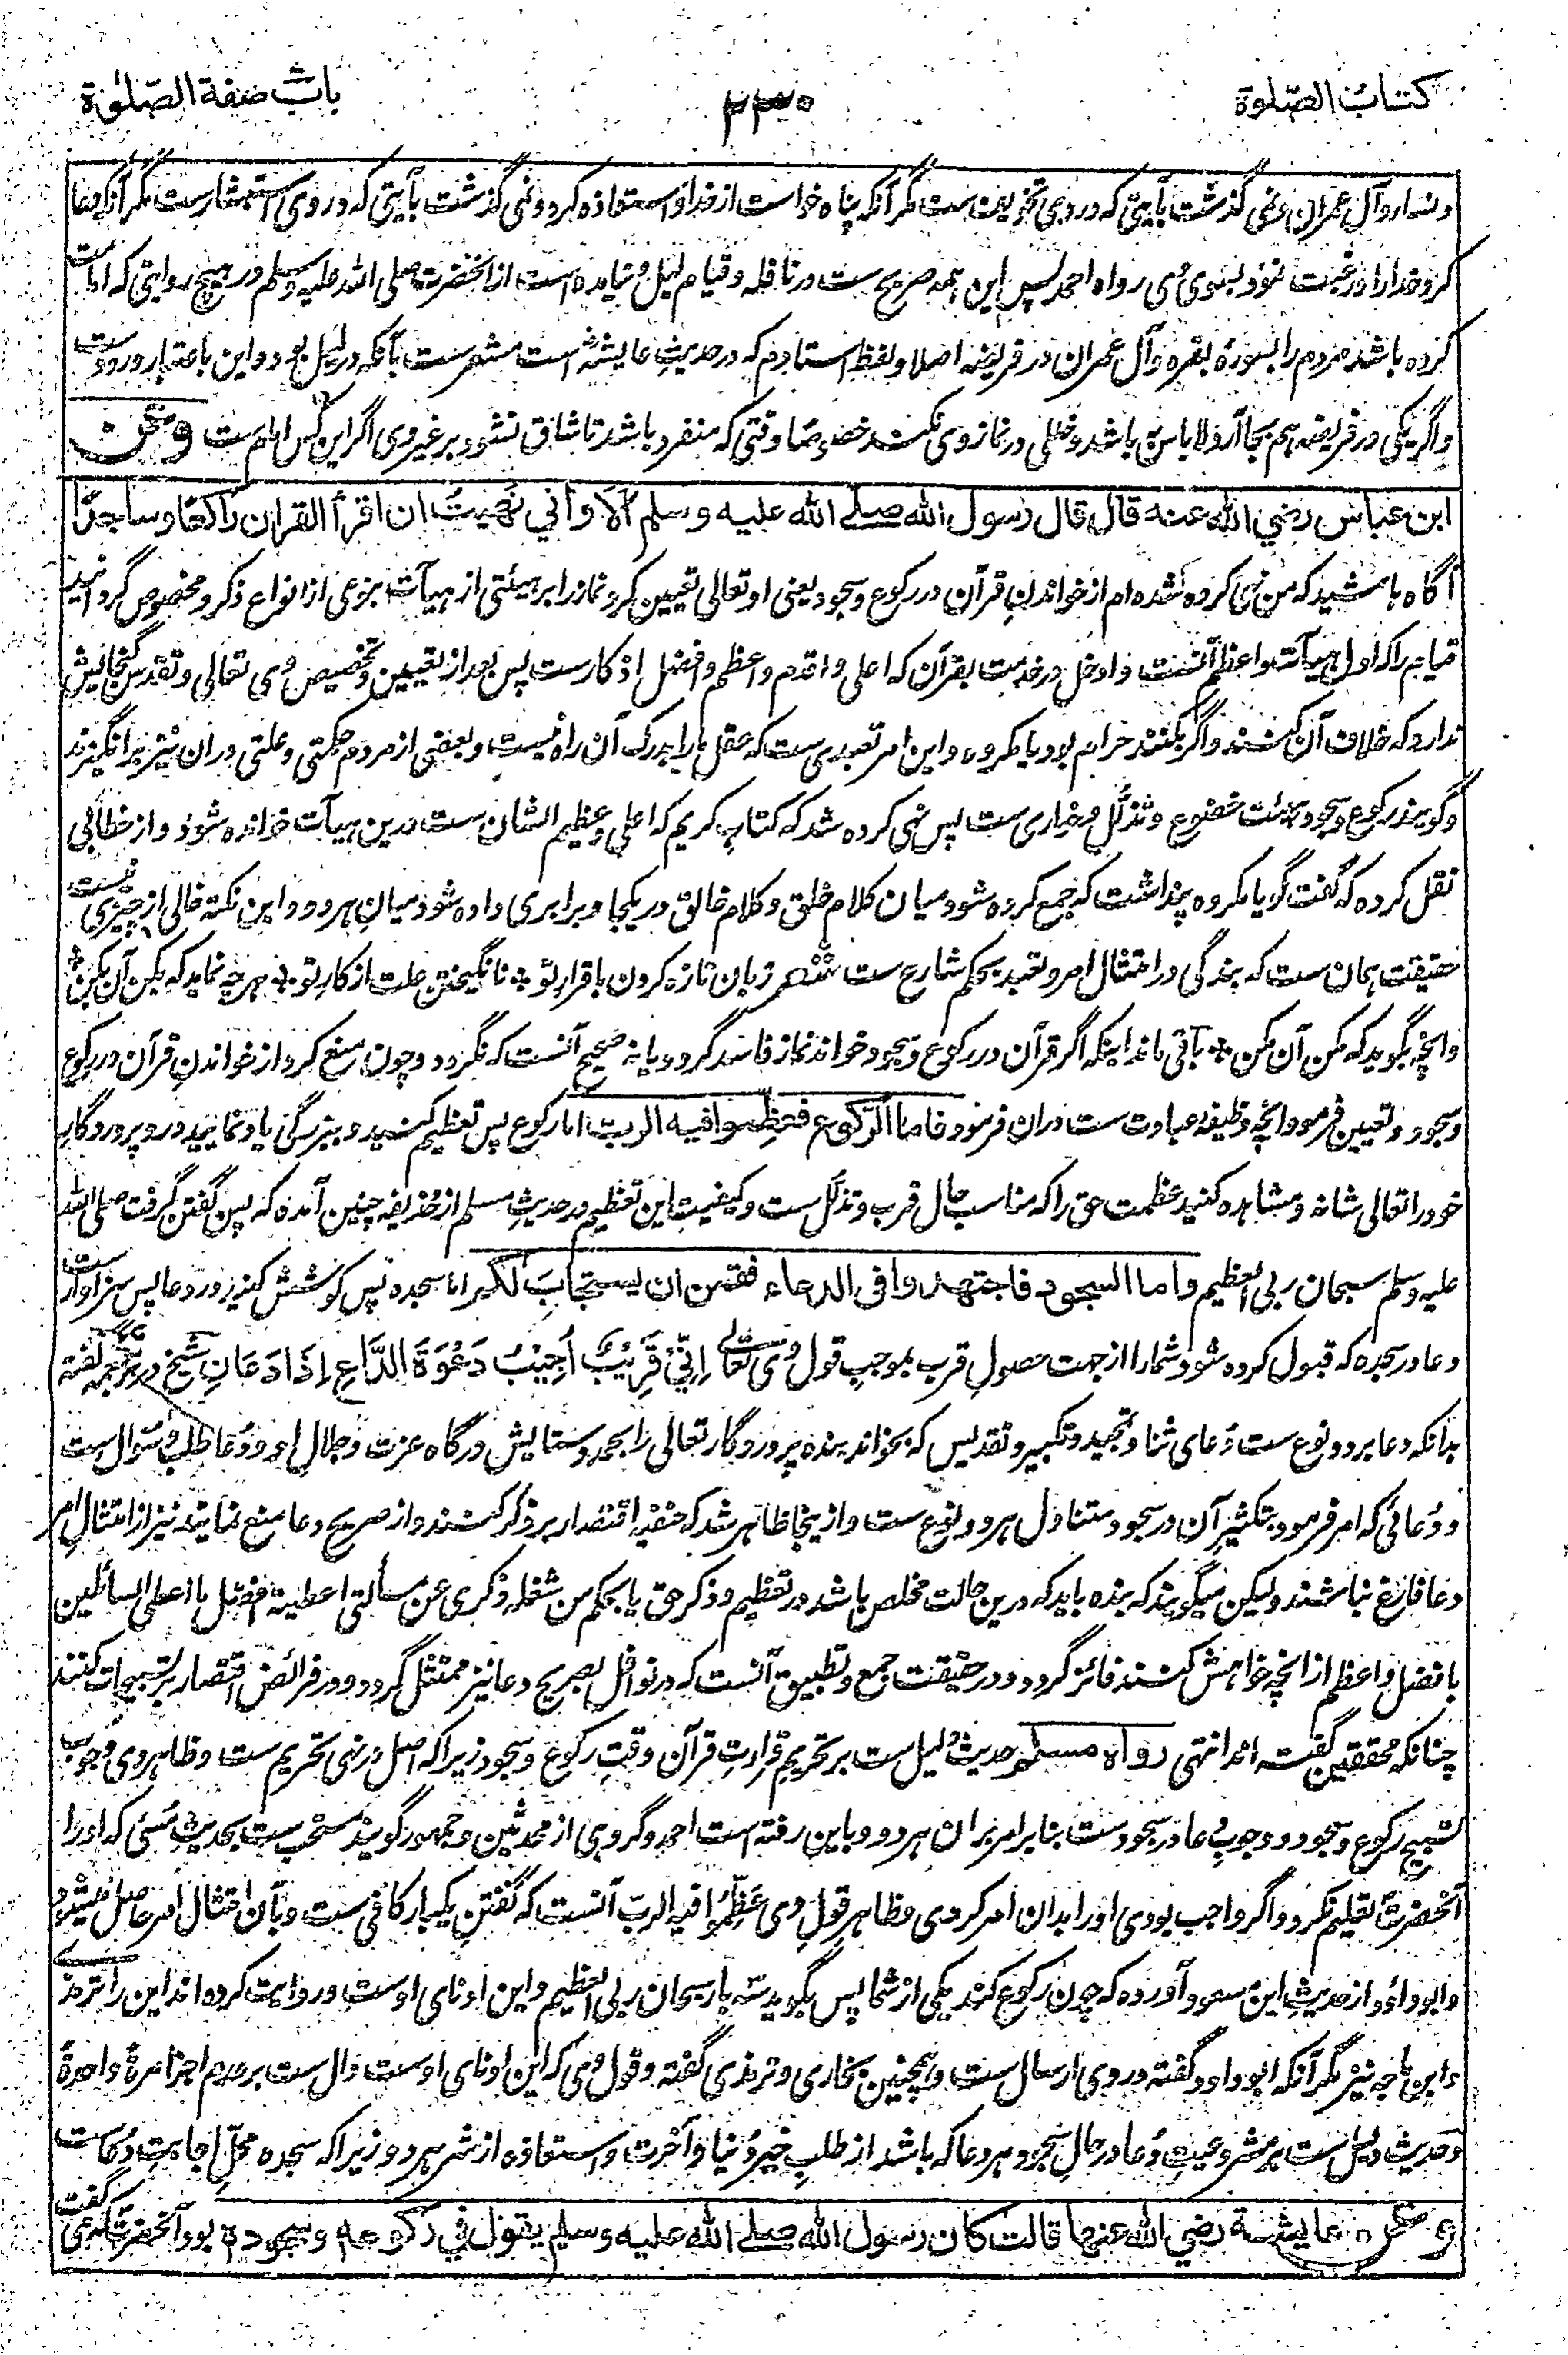 كتاب الصلوة
٢٣٠
باب صفة الصلوة
و نساء و آل عمران و نمی گذشت بآیتی که در وی تخویف ست مگر آنکه پناه خواست از خدا و استعاذه کرد و نمی گذشت بآیتی که در وی استبشار ست مگر آنکه دعا
کرد خدا را و رغبت نمود بسوی وی رواه احمد پس این همه صریح ست در نافله و قیام لیل و نیامده است از آنحضرت صلی الله علیه وسلم در هیچ روایتی که امامت
کرده باشد مردم را بسوره بقره و آل عمران در فریضه اصلا و لفظ استادم که در حدیث عایشه است مشعر ست بآنکه در لیل بود و این باعتبار ورود ست
و اگر یکی در فریضه هم بجا آرد لا باس به باشد و خللی در نماز وی نکند خصوصا وقتی که منفرد باشد تا شاق نشود بر غیر وی اگر این کس امام ست وعن
ابن عباس رضي الله عنه قال قال رسول الله صلے الله عليه وسلم ألا واني نهيت ان اقرأ القرآن راكعا وساجدا
آگاه باشید که من نهی کرده شده ام از خواندن قرآن در رکوع و سجود یعنی او تعالی تعیین کرد نماز را بر هیئتی از هیآت بنوعی از انواع ذکر و مخصوص گردانید
قیام را که اول هیآت و اعظم آنست و ادخل در خدمت بقرآن که اعلی و اقدم و اعظم و افضل اذکار ست پس بعد از تعیین و تخصیص وی تعالی و تقدس گنجایش
ندارد که خلاف آن کنند و اگر بکنند حرام بود یا مکروه و این امر تعبدی ست که عقل ما را بدرک آن راه نیست و بعضی از مردم حکمتی و علتی در ان نیز برانگیزند
و گویند رکوع و سجود هیئت خضوع و تذلل و خواری ست پس نهی کرده شد که کتاب کریم که اعلی و عظیم الشان ست درین هیآت خوانده شود و از خطابی
نقل کرده که گفت گویا مکروه پنداشت که جمع کرده شود میان کلام خلق و کلام خالق در یکجا و برابری داده شود میان هر دو و این نکته خالی از چیزی نیست
حقیقت همان ست که بندگی در امتثال امر و تعبد بحکم شارع ست شعر زبان تازه کردن باقرار تو ٭ نانگیختن علت از کار تو ٭ هر چه نماید که بکن آن بکن ٭
و انچه بگوید که مکن آن مکن ٭ باقی ماند اینکه اگر قرآن در رکوع و سجود خواند نماز فاسد گردد یا نه صحیح آنست که نگردد و چون منع کرد از خواندن قرآن در رکوع
و سجود و تعیین فرمود انچه وظیفه عبادت ست دران فرمود فاما الركوع فعظموا فيه الرب اما رکوع پس تعظیم کنید و ببزرگی یاد نمایید درو پروردگار
خود را تعالی شانه و مشاهده کنید عظمت حق را که مناسب حال قرب و تذلل ست و کیفیت این تعظیم در حدیث مسلم از حذیفه چنین آمده که پس گفتن گرفت صلی الله
علیه وسلم سبحان ربی العظیم واما السجود فاجتهدوا في الدعاء فقمن ان يستجاب لكم اما سجده پس کوشش کنید در دعا پس سزاوار ست
دعا در سجده که قبول کرده شود شما را از جهت حصول قرب بموجب قول وی تعالے اِنِّیْ قَرِیْبٌ اُجِیْبُ دَعْوَةَ الدَّاعِ اِذَا دَعَانِ شیخ در ترجمه گفته
بدانکه دعا بر دو نوع ست دعای ثنا و تمجید و تکبیر و تقدیس که بخواند بنده پروردگار تعالی را بحمد و ستایش درگاه عزت و جلال او و دعا طلب و سوال ست
و دعائی که امر فرمود بتکثیر آن در سجود متناول هر دو نوع ست و ازینجا ظاهر شد که حنفیه اقتصار بر ذکر کنند و از صریح دعا منع نمایند نیز از امتثال امر
دعا فارغ نباشند ولیکن میگویند که بنده باید که درین حالت مخلص باشد در تعظیم و ذکر حق یا بحکم من شغله ذکری عن مسألتی اعطیته افضل ما اعطی السائلین
بافضل و اعظم از انچه خواهش کنند فائز گردد و در حقیقت جمع و تطبیق آنست که در نوافل بصریح دعا نیز ممتثل گردد و در فرائض اقتصار بر تسبیحات کنند
چنانکه محققین گفته اند انتهی رواه مسلم حدیث دلیل ست بر تحریم قراءت قرآن وقت رکوع و سجود زیرا که اصل در نهی تحریم ست و ظاهر وی وجوب
تسبیح رکوع و سجود و وجوب دعا در سجود ست بنا بر امر بر ان هر دو و باین رفته است احمد و گروهی از محدثین و جمهور گویند مستحب ست بحدیث مسئی که او را
آنحضرت تعلیم نکرد و اگر واجب بودی او را بدان امر کردی و ظاهر قول وی عَظِّمُوا فیه الرب آنست که گفتن یکبار کافی ست و بآن امتثال امر حاصل میشود
و ابو داود از حدیث ابن مسعود آورده که چون رکوع کند یکی از شما پس بگوید سه بار سبحان ربی العظیم و این ادنای اوست و روایت کرده اند این را ترمذے
و ابن ماجه نیز مگر آنکه ابو داود گفته در وی ارسال ست و همچنین بخاری و ترمذی گفته و قول وی که این ادنای اوست دال ست بر عدم اجزا مرة واحدة
و حدیث دلیل ست بر مشروعیت دعا در حال سجود هر دعا که باشد از طلب خیر دنیا و آخرت و استعاذه از شر هر دو زیرا که سجده محل اجابت دعاست
وعن عايشة رضي الله عنها قالت كان رسول الله صلے الله عليه وسلم يقول في ركوعه وسجوده بود آنحضرت که می گفت